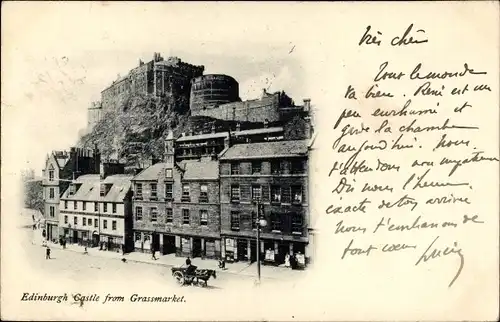 Très chère
Tout le monde
va bien. René est un
peu enrhumé et
garde la chambre
aujourd'hui. Nous
t'attendons
Dis nous l'heure
exacte de ton arrivée
nous t'embrassons de
tout cœur
Lucie
Edinburgh Castle from Grassmarket.